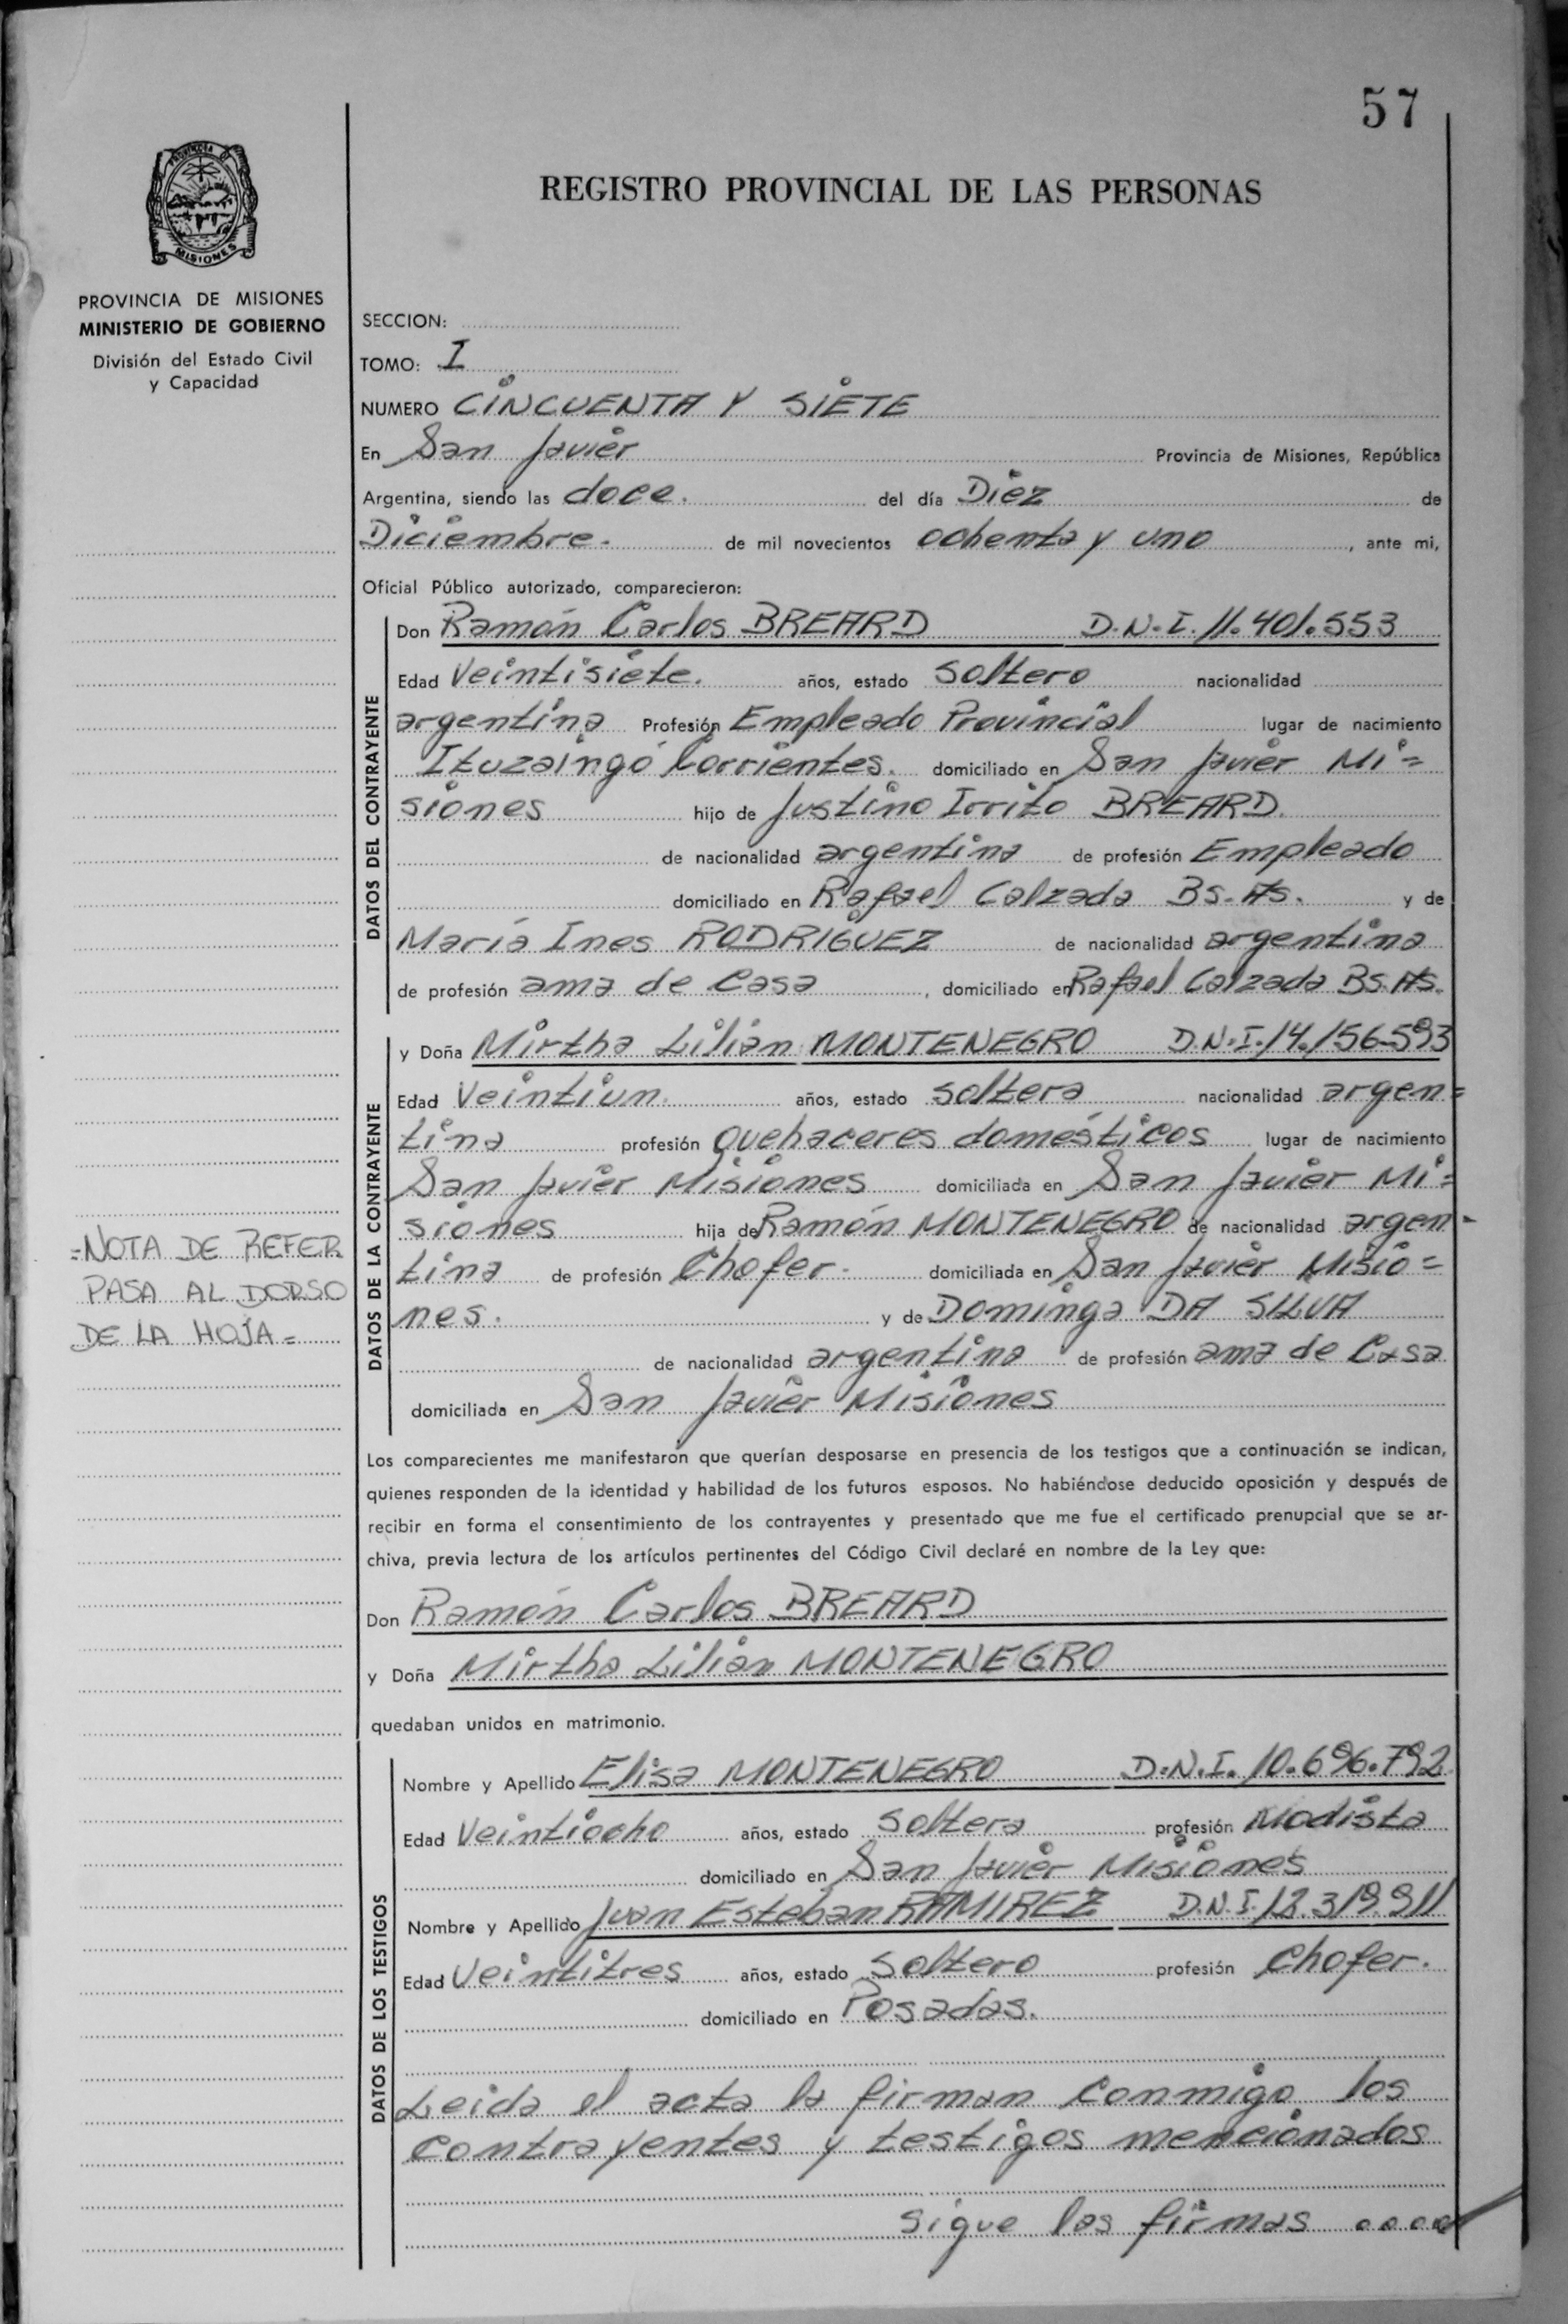 57
PROVINCIA D
MISIONES
REGISTRO PROVINCIAL DE LAS PERSONAS
PROVINCIA DE MISIONES
MINISTERIO DE GOBIERNO
División del Estado Civil
y Capacidad
SECCION:
TOMO: I
NUMERO CINCUENTA Y SIETE
En San Javier Provincia de Misiones, República
Argentina, siendo las doce. del día Diez de
Diciembre. de mil novecientos ochenta y uno, ante mi,
Oficial Público autorizado, comparecieron:
DATOS DEL CONTRAYENTE
Don Ramón Carlos BREARD D.N.I. 11.401.553
Edad Veintisiete. años, estado Soltero nacionalidad
argentina Profesión Empleado Provincial lugar de nacimiento
Ituzaingó Corrientes. domiciliado en San Javier Mi=
siones hijo de Justino Irrito BREARD.
de nacionalidad argentina de profesión Empleado
domiciliado en Rafael Calzada Bs. As. y de
María Ines RODRIGUEZ de nacionalidad argentina
de profesión ama de Casa, domiciliado en Rafael Calzada Bs. As.
DATOS DE LA CONTRAYENTE
y Doña Mirtha Lilian MONTENEGRO D.N.I. 14.156-593
Edad Veintiun. años, estado Soltera nacionalidad argen=
tina profesión Quehaceres domésticos lugar de nacimiento
San Javier Misiones domiciliada en San Javier Mi=
siones hija de Ramón MONTENEGRO de nacionalidad argen-
tina de profesión Chofer. domiciliada en San Javier Misio=
nes. y de Dominga DA SILVA
de nacionalidad argentina de profesión ama de Casa
domiciliada en San Javier Misiones
=NOTA DE REFER
PASA AL DORSO
DE LA HOJA=
Los comparecientes me manifestarón que querían desposarse en presencia de los testigos que a continuación se indican,
quienes responden de la identidad y habilidad de los futuros esposos. No habiéndose deducido oposición y después de
recibir en forma el consentimiento de los contrayentes y presentado que me fue el certificado prenupcial que se ar-
chiva, previa lectura de los artículos pertinentes del Código Civil declaré en nombre de la Ley que:
Don Ramón Carlos BREARD
y Doña Mirtha Lilian MONTENEGRO
quedaban unidos en matrimonio.
DATOS DE LOS TESTIGOS
Nombre y Apellido Elisa MONTENEGRO D.N.I. 10.696.792
Edad Veintiocho años, estado Soltera profesión Modista
domiciliado en San Javier Misiones
Nombre y Apellido Juan Esteban RAMIREZ D.N.I. 12.319.911
Edad Veintitres años, estado Soltero profesión Chofer.
domiciliado en Posadas.
Leida el acta la firman conmigo los
contrayentes y testigos mencionados
sigue las firmas